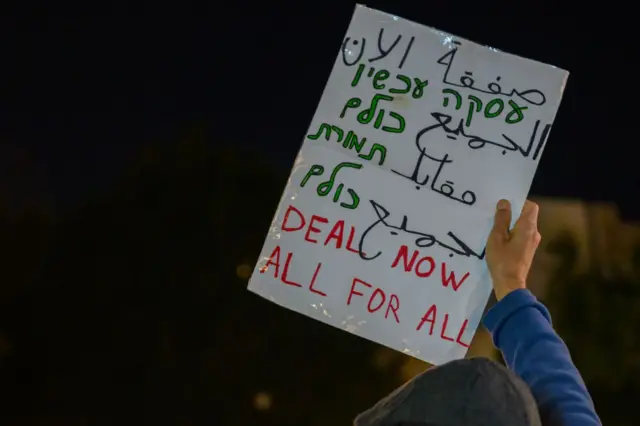 صفقة الان
עסקה עכשיו
الجميع
כולם
مقابل
תמורת
الجميع
כולם
DEAL NOW
ALL FOR ALL